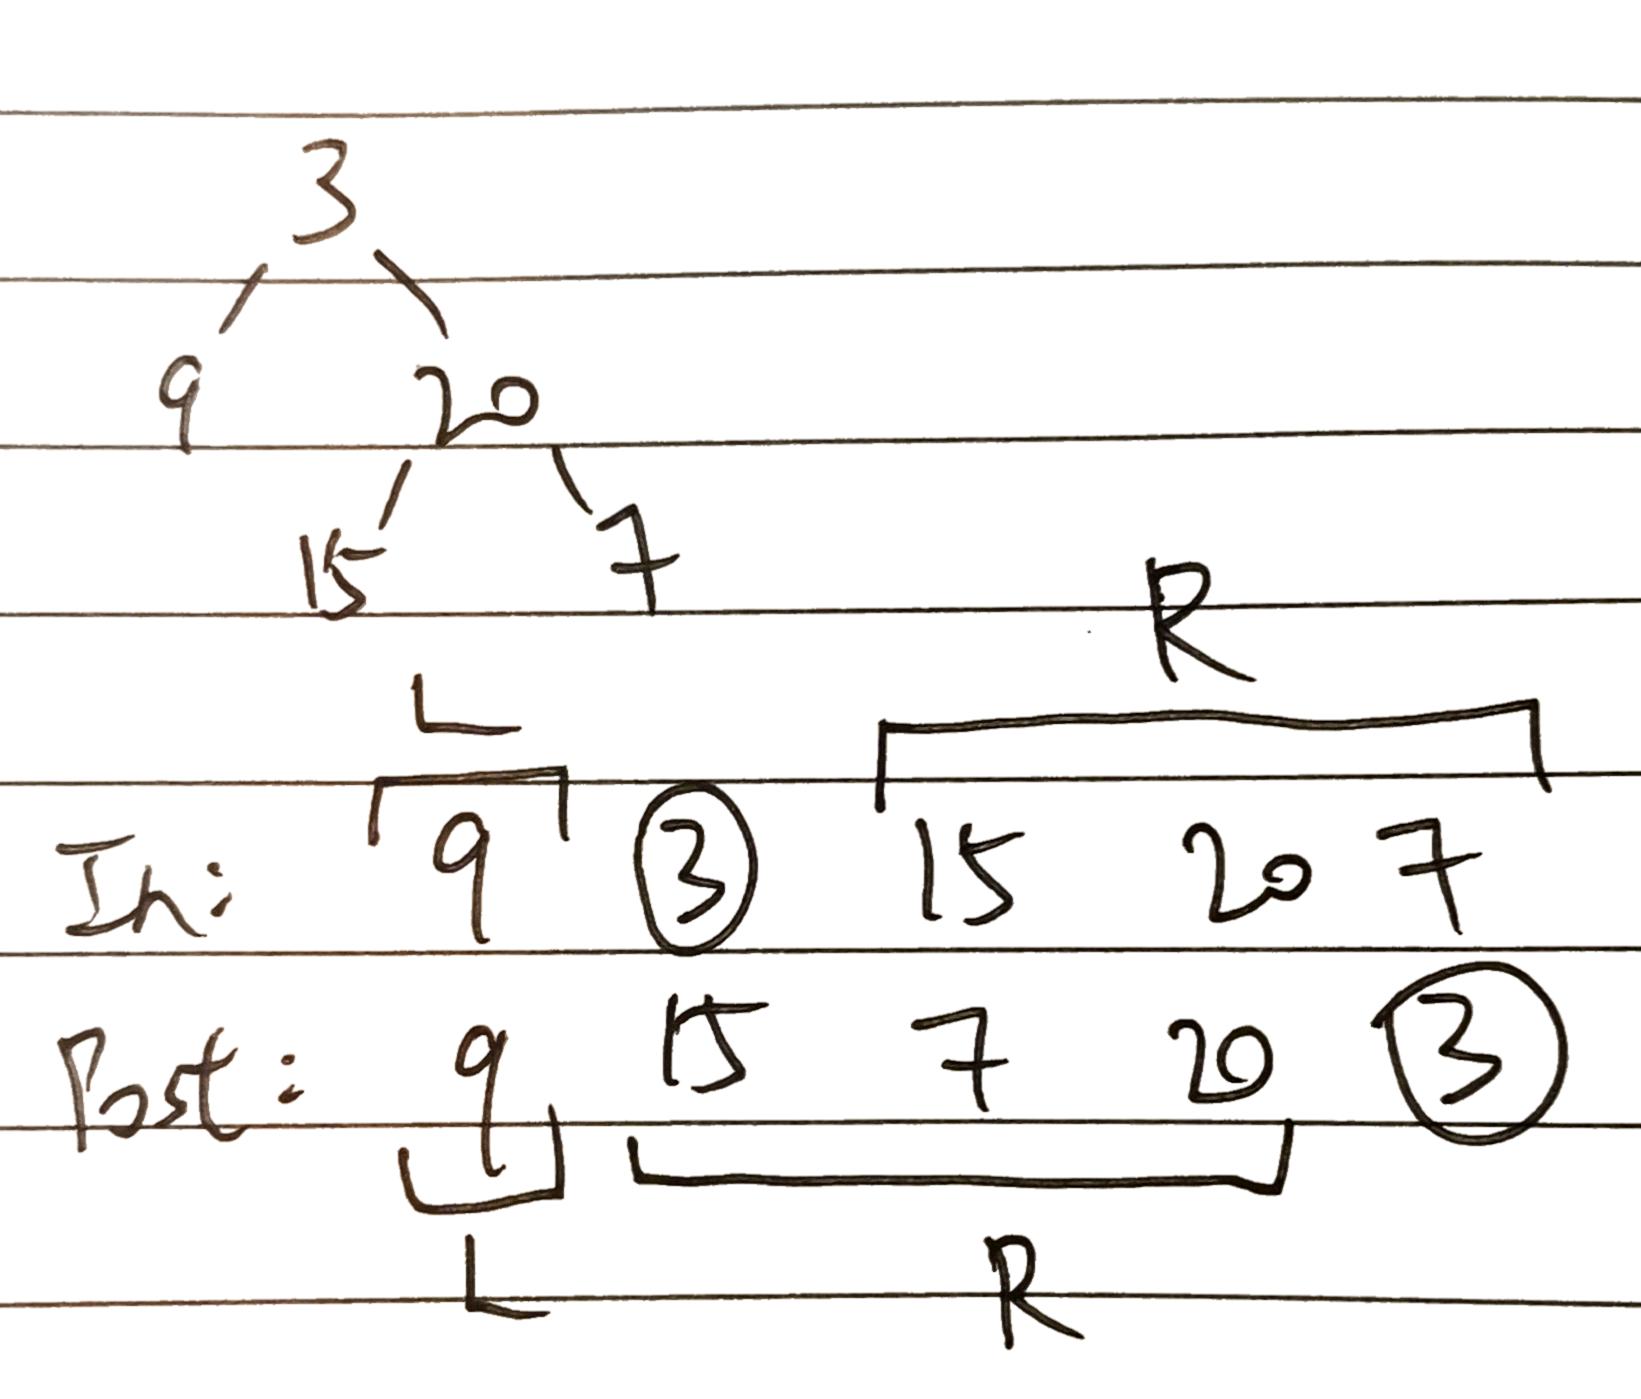 3
9 20
15 7
R
L
In: 9 3 15 20 7
Post: 9 15 7 20 3
L R